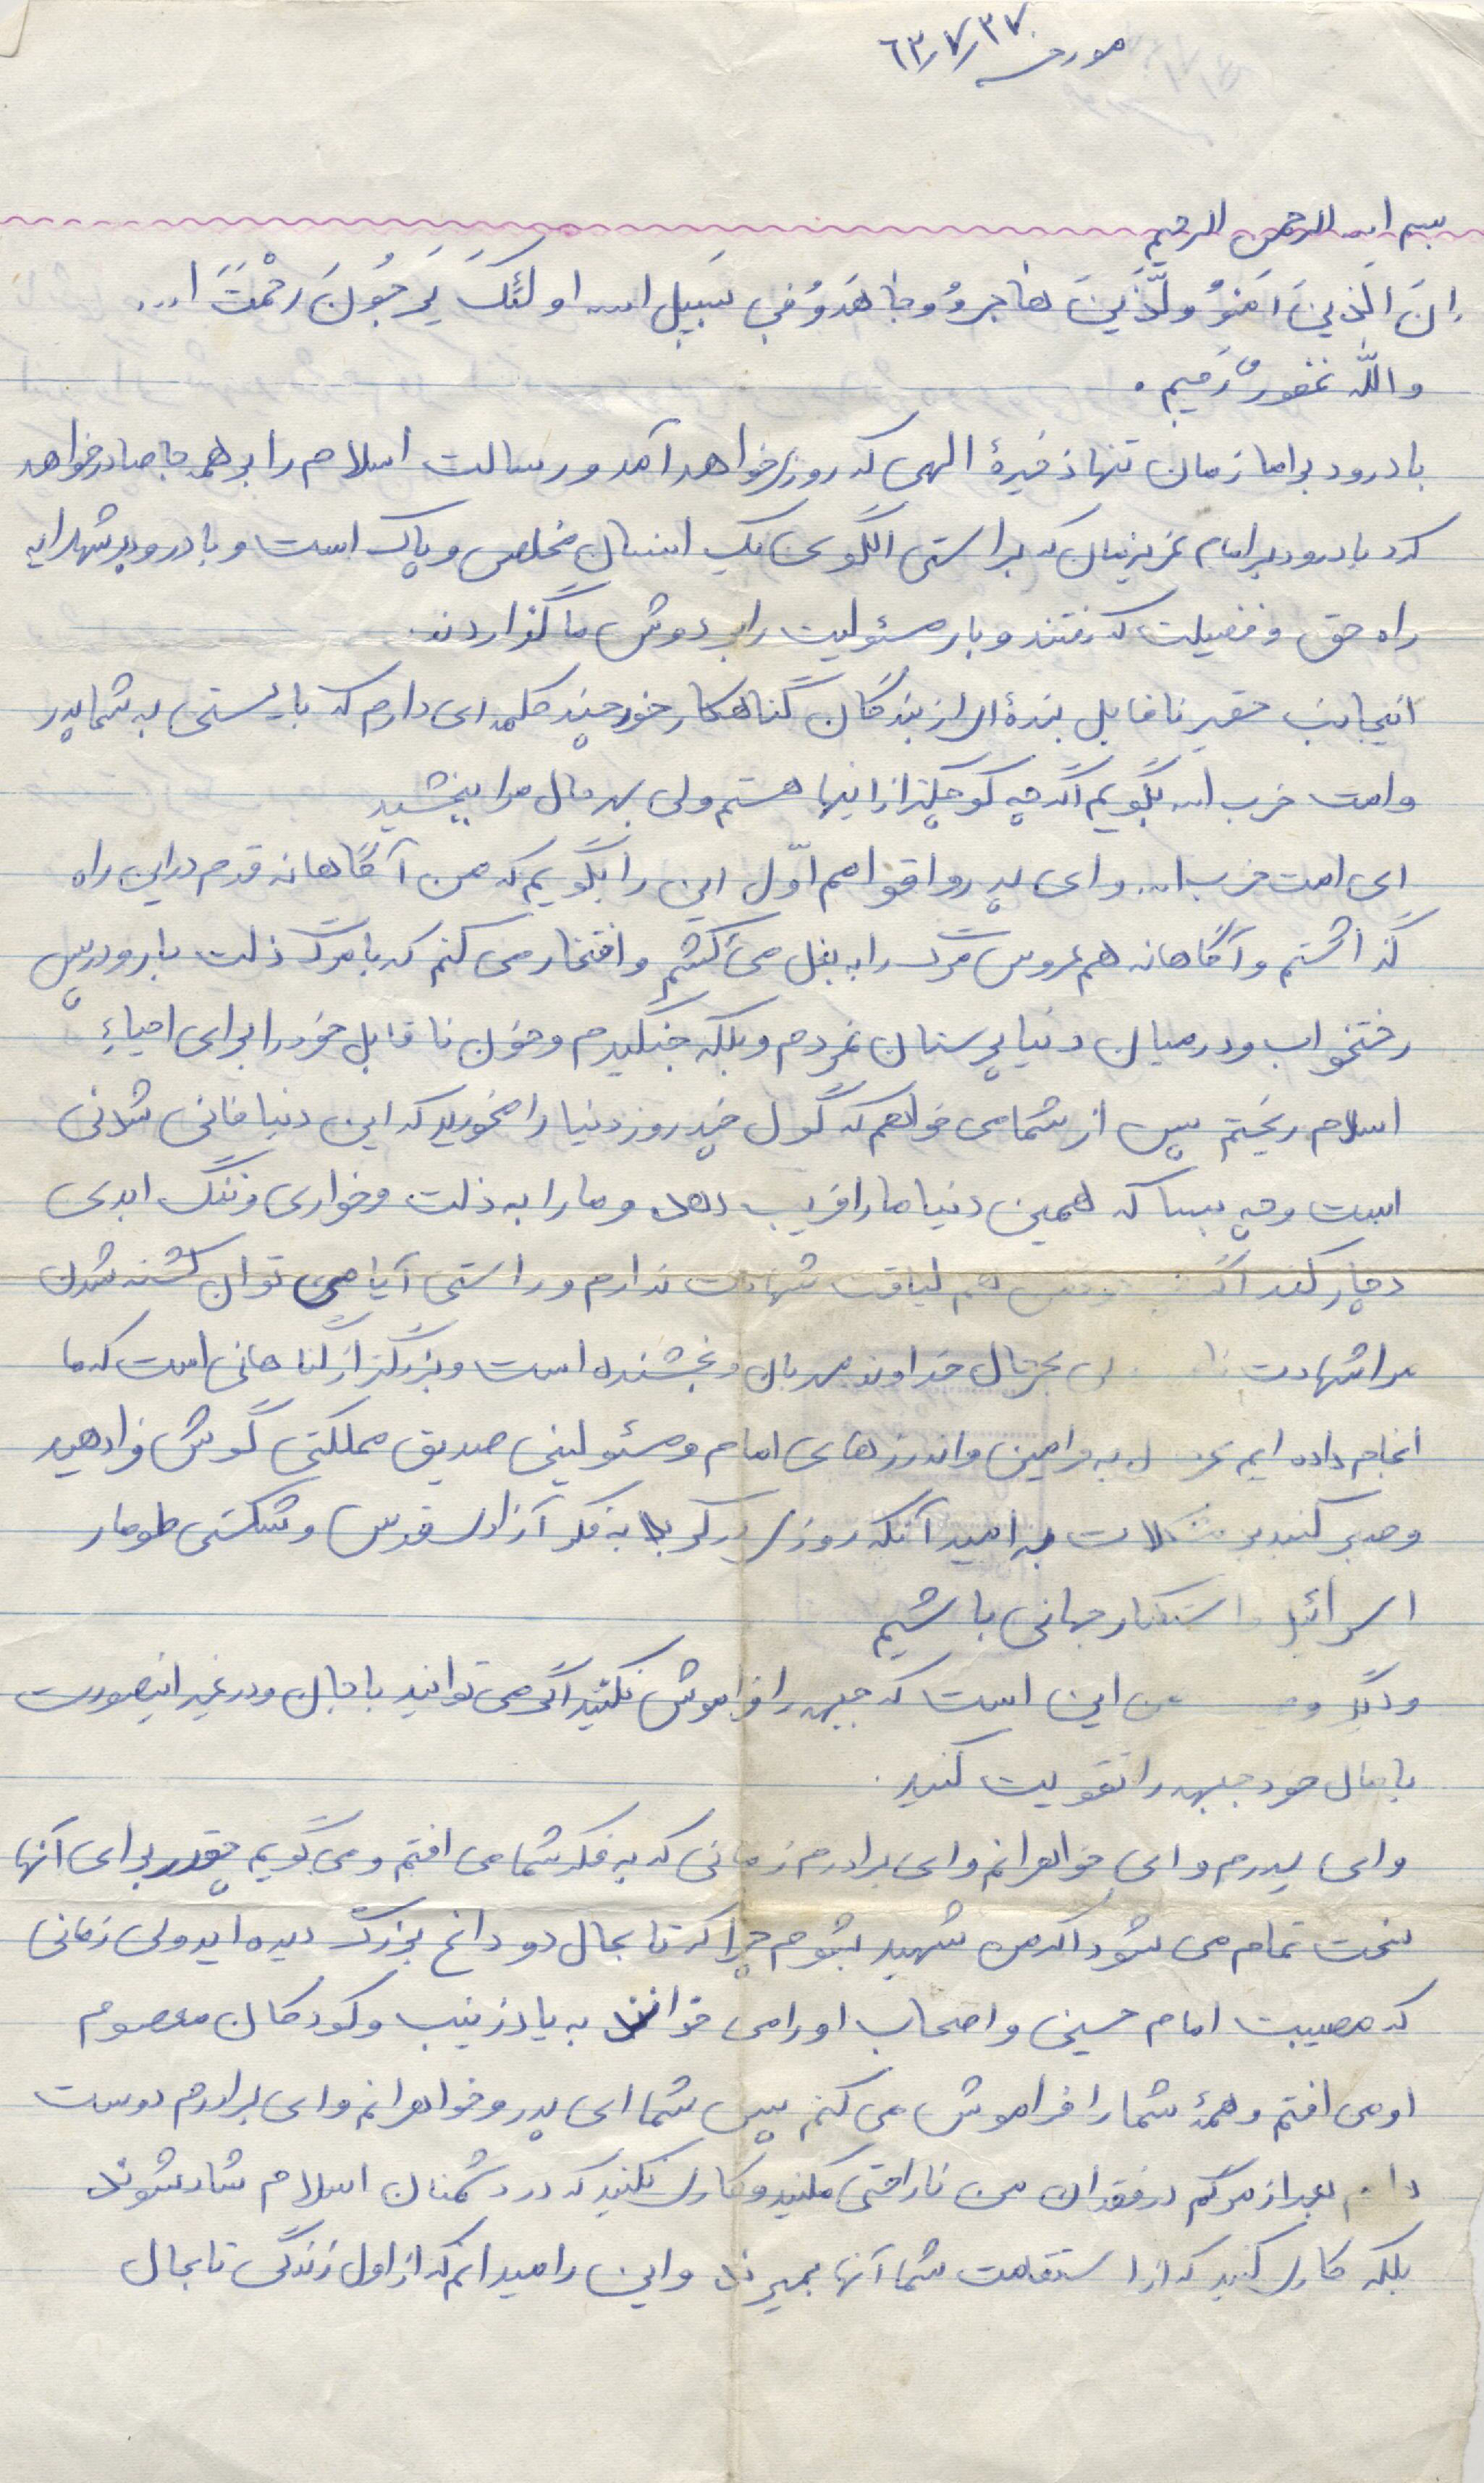 مورخه ۶۳/۷/۲۷
بسم الله الرحمن الرحیم
اِنَ اَلَذینَ اَمَنوُ وَلَّذینَ هاجروُ وجاهَدَوُفی سَبیلِ ا... اولئِکَ یَرجُونَ رَحْمْتَ ا...
واللّه غفورٌ رَحیم .
با درود بر امام زمان تنها ذخیرهٔ الهی که روزی خواهد آمد و رسالت اسلام را بر همه جا صادر خواهد
کرد با درود بر امام عزیزمان که براستی الگوی یک انسان مخلص و پاک است و با درود بر شهدایه
راه حق و فضیلت که رفتند و بار مسئولیت را بر دوش ما گذاردند.
اینجانب حقیر ناقابل بندهٔ ای از بندگان گناهکار خود چند کلمه ای دارم که بایستی به شما پدر
و امت حزب ا... بگویم اگر چه کوچکتر از اینها هستم ولی بهر حال مرا ببخشید
ای امت حزب ا... و ای پدر و اقوامم اوّل این را بگویم که من آگاهانه قدم در این راه
گذاشتم و آگاهانه هم عروس مرگ را به بغل می کشم و افتخار می کنم که با مرگ ذلت بار و در پس
رختخواب و در میان دنیا پرستان نمردم و بلکه جنگیدم و خون ناقابل خود را برای احیاءِ
اسلام ریختم پس از شما می خواهم که گول چند روز دنیا را نخورید که این دنیا فانی شدنی
است و چه بسا که همین دنیا ما را فریب دهد و ما را به ذلت و خواری و ننگ ابدی
دچار کند هم لیاقت شهادت ندارم و راستی آیا می توان کشته شدن
مرا شهادت بحرحال خداوند مهربان و بخشنده است و بزرگتر از گناهانی است که ما
انجام داده ایم به فرامین و اندرزهای امام و مسئولینی صدیق مملکتی گوش فرا دهید
و صبر کنید بر مشکلات به امید آنکه روزی در کربلا به فکر آزادی قدس و شکستی طومار
اسرائیل و استکبار جهانی باشیم
و دیگر من این است که جبهه را فراموش نکنید اگر می توانید با جان و در غیر اینصورت
با مال خود جبهه را تقویت کنید.
و ای پدرم و ای خواهرانم و ای برادرم زمانی که به فکر شما می افتم و می گویم چقدر برای آنها
سخت تمام می شود اگر من شهید بشوم چرا که تا بحال دو داغ بزرگ دیده اید ولی زمانی
که مصیبت امام حسین و اصحاب او را می خوانند به یاد زینب و کودکان معصوم
او می افتم و همهٔ شما را فراموش می کنم پس شما ای پدر و خواهرانم و ای برادرم دوست
دارم بعد از مرگم در فقدان من ناراحتی مکنید و کاری نکنید که در دشمنان اسلام شاد شوند
بلکه کاری کنید که از استقامت شما آنها بمیرند و این را میدانم که از اول زندگی تا بحال